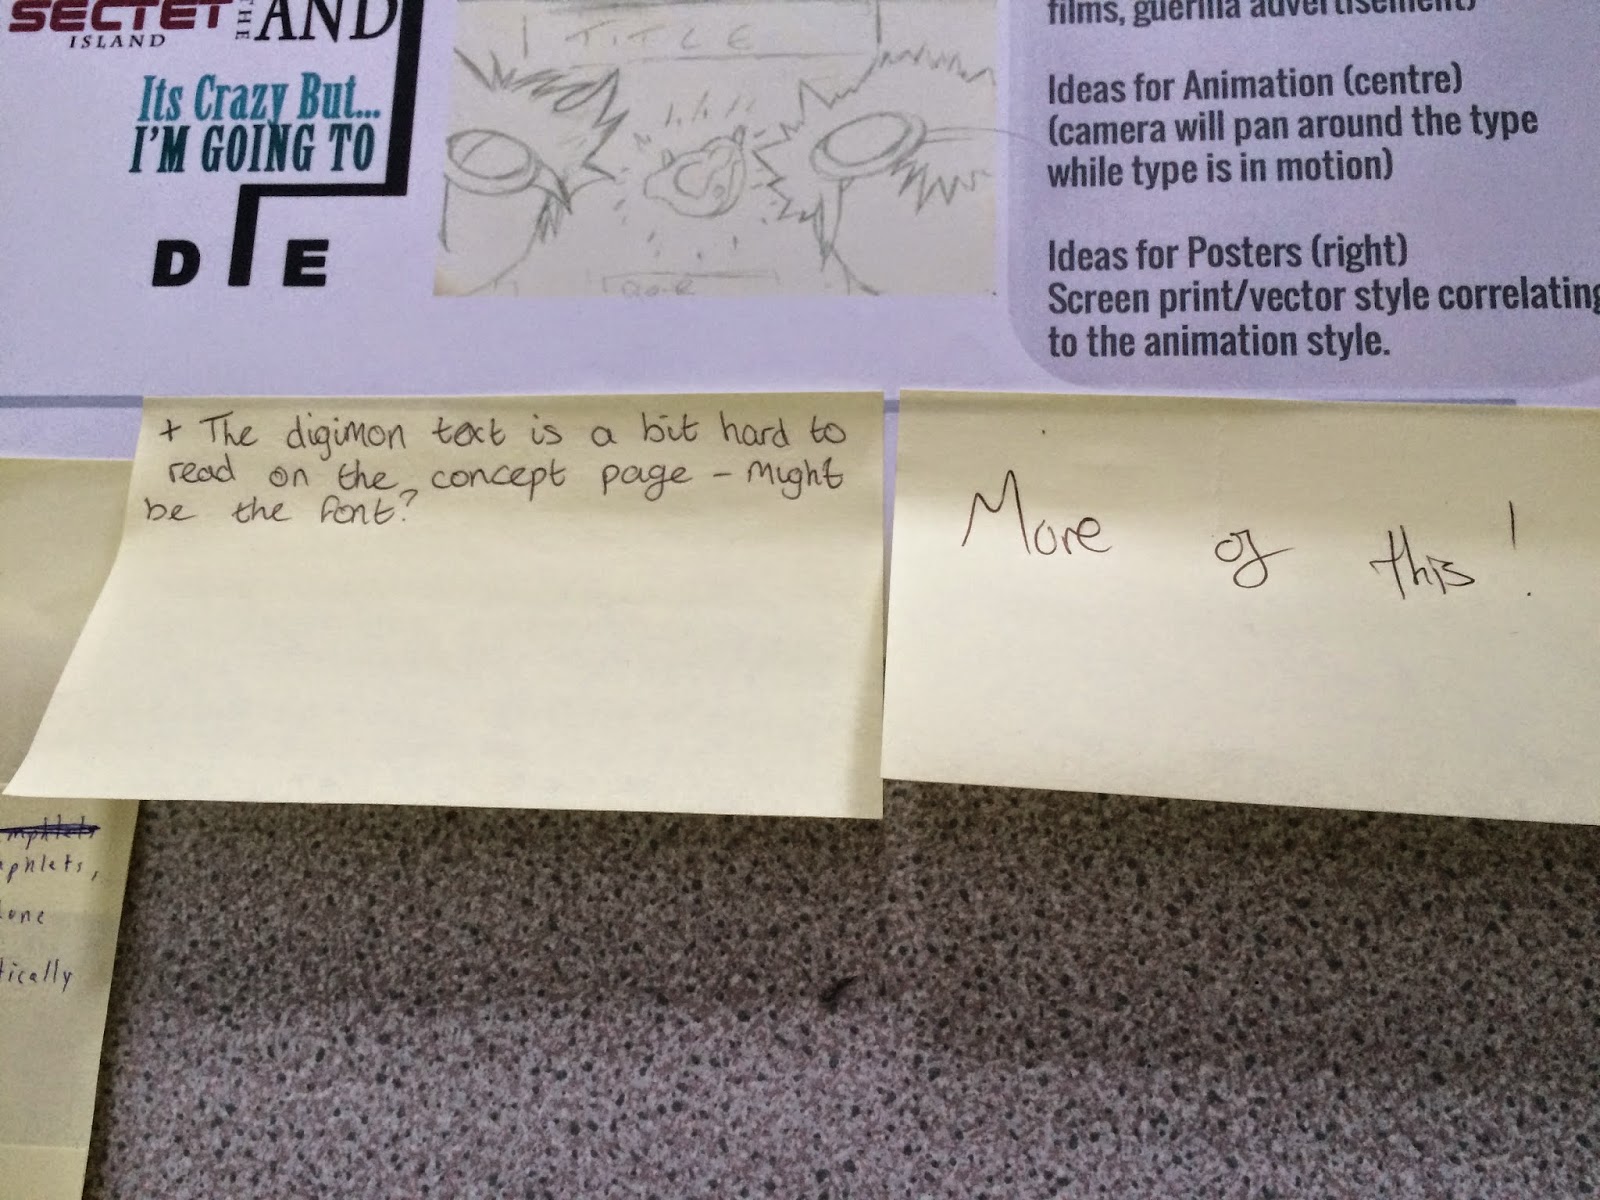 SECTET THE AND
ISLAND
Its Crazy But...
I'M GOING TO
DIE
TITLE
films, guerilla advertisement)
Ideas for Animation (centre)
(camera will pan around the type
while type is in motion)
Ideas for Posters (right)
Screen print/vector style correlating
to the animation style.
+ The digimon text is a bit hard to
read on the concept page - Might
be the font?
More of this!
mphlets
aphlets,
lone
tically